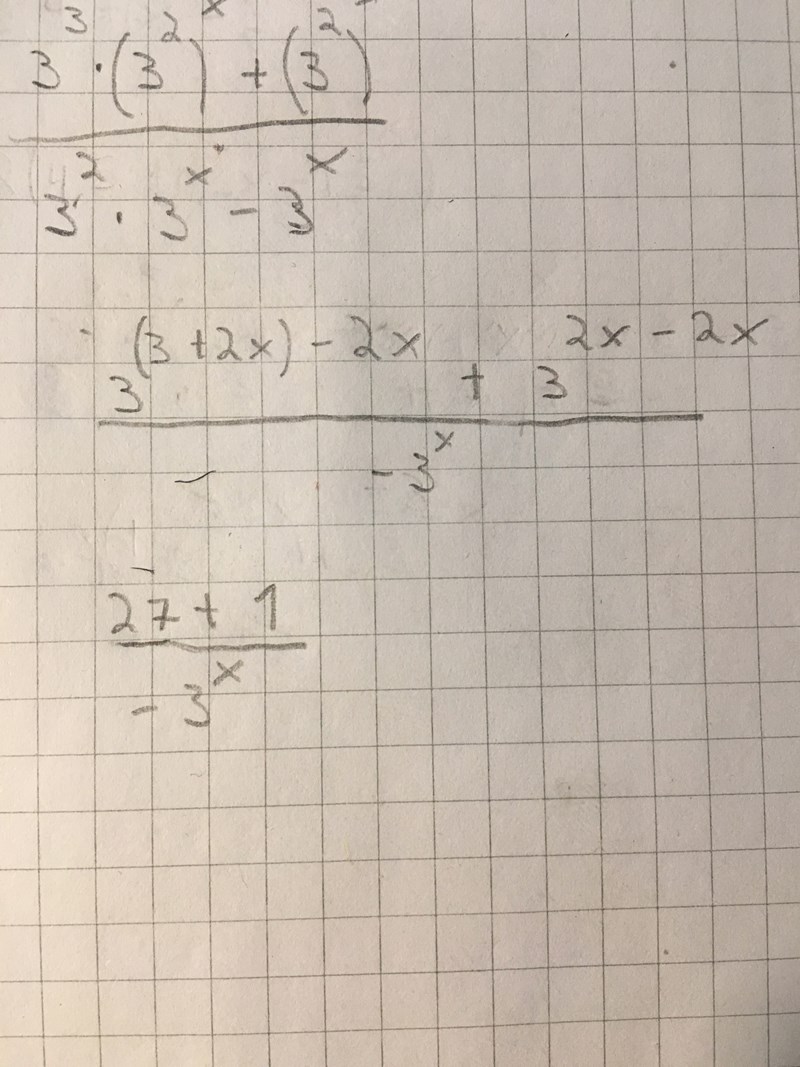 3³ · (3²)ˣ + (3²)
3² · 3ˣ - 3ˣ
3^((3 + 2x) - 2x) + 3^(2x - 2x)
- 3ˣ
27 + 1
- 3ˣ